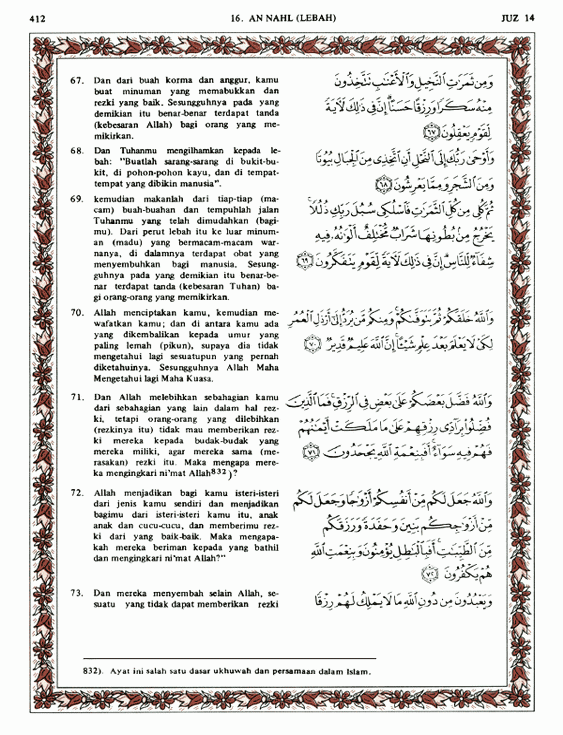 412
16. AN NAHL (LEBAH)
JUZ 14
67. Dan dari buah korma dan anggur, kamu
buat minuman yang memabukkan dan
rezki yang baik. Sesungguhnya pada yang
demikian itu benar-benar terdapat tanda
(kebesaran Allah) bagi orang yang me-
mikirkan.
وَمِن ثَمَرَٰتِ ٱلنَّخِيلِ وَٱلْأَعْنَٰبِ تَتَّخِذُونَ
مِنْهُ سَكَرًا وَرِزْقًا حَسَنًا إِنَّ فِى ذَٰلِكَ لَءَايَةً
لِّقَوْمٍ يَعْقِلُونَ ﴿٦٧﴾
68. Dan Tuhanmu mengilhamkan kepada le-
bah: "Buatlah sarang-sarang di bukit-bu-
kit, di pohon-pohon kayu, dan di tempat-
tempat yang dibikin manusia".
وَأَوْحَىٰ رَبُّكَ إِلَى ٱلنَّحْلِ أَنِ ٱتَّخِذِى مِنَ ٱلْجِبَالِ بُيُوتًا
وَمِنَ ٱلشَّجَرِ وَمِمَّا يَعْرِشُونَ ﴿٦٨﴾
69. kemudian makanlah dari tiap-tiap (ma-
cam) buah-buahan dan tempuhlah jalan
Tuhanmu yang telah dimudahkan (bagi-
mu). Dari perut lebah itu ke luar minum-
an (madu) yang bermacam-macam war-
nanya, di dalamnya terdapat obat yang
menyembuhkan bagi manusia. Sesung-
guhnya pada yang demikian itu benar-be-
nar terdapat tanda (kebesaran Tuhan) ba-
gi orang-orang yang memikirkan.
ثُمَّ كُلِى مِن كُلِّ ٱلثَّمَرَٰتِ فَٱسْلُكِى سُبُلَ رَبِّكِ ذُلُلًا
يَخْرُجُ مِنۢ بُطُونِهَا شَرَابٌ مُّخْتَلِفٌ أَلْوَٰنُهُۥ فِيهِ
شِفَآءٌ لِّلنَّاسِ إِنَّ فِى ذَٰلِكَ لَءَايَةً لِّقَوْمٍ يَتَفَكَّرُونَ ﴿٦٩﴾
70. Allah menciptakan kamu, kemudian me-
wafatkan kamu; dan di antara kamu ada
yang dikembalikan kepada umur yang
paling lemah (pikun), supaya dia tidak
mengetahui lagi sesuatupun yang pernah
diketahuinya. Sesungguhnya Allah Maha
Mengetahui lagi Maha Kuasa.
وَٱللَّهُ خَلَقَكُمْ ثُمَّ يَتَوَفَّىٰكُمْ وَمِنكُم مَّن يُرَدُّ إِلَىٰٓ أَرْذَلِ ٱلْعُمُرِ
لِكَىْ لَا يَعْلَمَ بَعْدَ عِلْمٍ شَيْـًٔا إِنَّ ٱللَّهَ عَلِيمٌ قَدِيرٌ ﴿٧٠﴾
71. Dan Allah melebihkan sebahagian kamu
dari sebahagian yang lain dalam hal rez-
ki, tetapi orang-orang yang dilebihkan
(rezkinya itu) tidak mau memberikan rez-
ki mereka kepada budak-budak yang
mereka miliki, agar mereka sama (me-
rasakan) rezki itu. Maka mengapa mere-
ka mengingkari ni'mat Allah832)?
وَٱللَّهُ فَضَّلَ بَعْضَكُمْ عَلَىٰ بَعْضٍ فِى ٱلرِّزْقِ فَمَا ٱلَّذِينَ
فُضِّلُوا۟ بِرَآدِّى رِزْقِهِمْ عَلَىٰ مَا مَلَكَتْ أَيْمَٰنُهُمْ
فَهُمْ فِيهِ سَوَآءٌ أَفَبِنِعْمَةِ ٱللَّهِ يَجْحَدُونَ ﴿٧١﴾
72. Allah menjadikan bagi kamu isteri-isteri
dari jenis kamu sendiri dan menjadikan
bagimu dari isteri-isteri kamu itu, anak
anak dan cucu-cucu, dan memberimu rez-
ki dari yang baik-baik. Maka mengapa-
kah mereka beriman kepada yang bathil
dan mengingkari ni'mat Allah?"
وَٱللَّهُ جَعَلَ لَكُم مِّنْ أَنفُسِكُمْ أَزْوَٰجًا وَجَعَلَ لَكُم
مِّنْ أَزْوَٰجِكُم بَنِينَ وَحَفَدَةً وَرَزَقَكُم
مِّنَ ٱلطَّيِّبَٰتِ أَفَبِٱلْبَٰطِلِ يُؤْمِنُونَ وَبِنِعْمَتِ ٱللَّهِ
هُمْ يَكْفُرُونَ ﴿٧٢﴾
73. Dan mereka menyembah selain Allah, se-
suatu yang tidak dapat memberikan rezki
وَيَعْبُدُونَ مِن دُونِ ٱللَّهِ مَا لَا يَمْلِكُ لَهُمْ رِزْقًا
832). Ayat ini salah satu dasar ukhuwah dan persamaan dalam Islam.